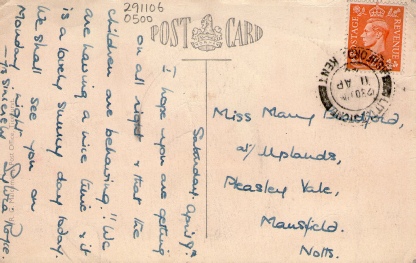 291106
0500
POST CARD
POSTAGE REVENUE
KENT
11 AP
Saturday. April 9th
I hope you are getting
on all right & that the
children are behaving!! We
are having a nice time & it
is a lovely sunny day today.
We shall see you on
Monday night
Sylvia
Miss Mary
Uplands,
Pleasley Vale,
Mansfield.
Notts.